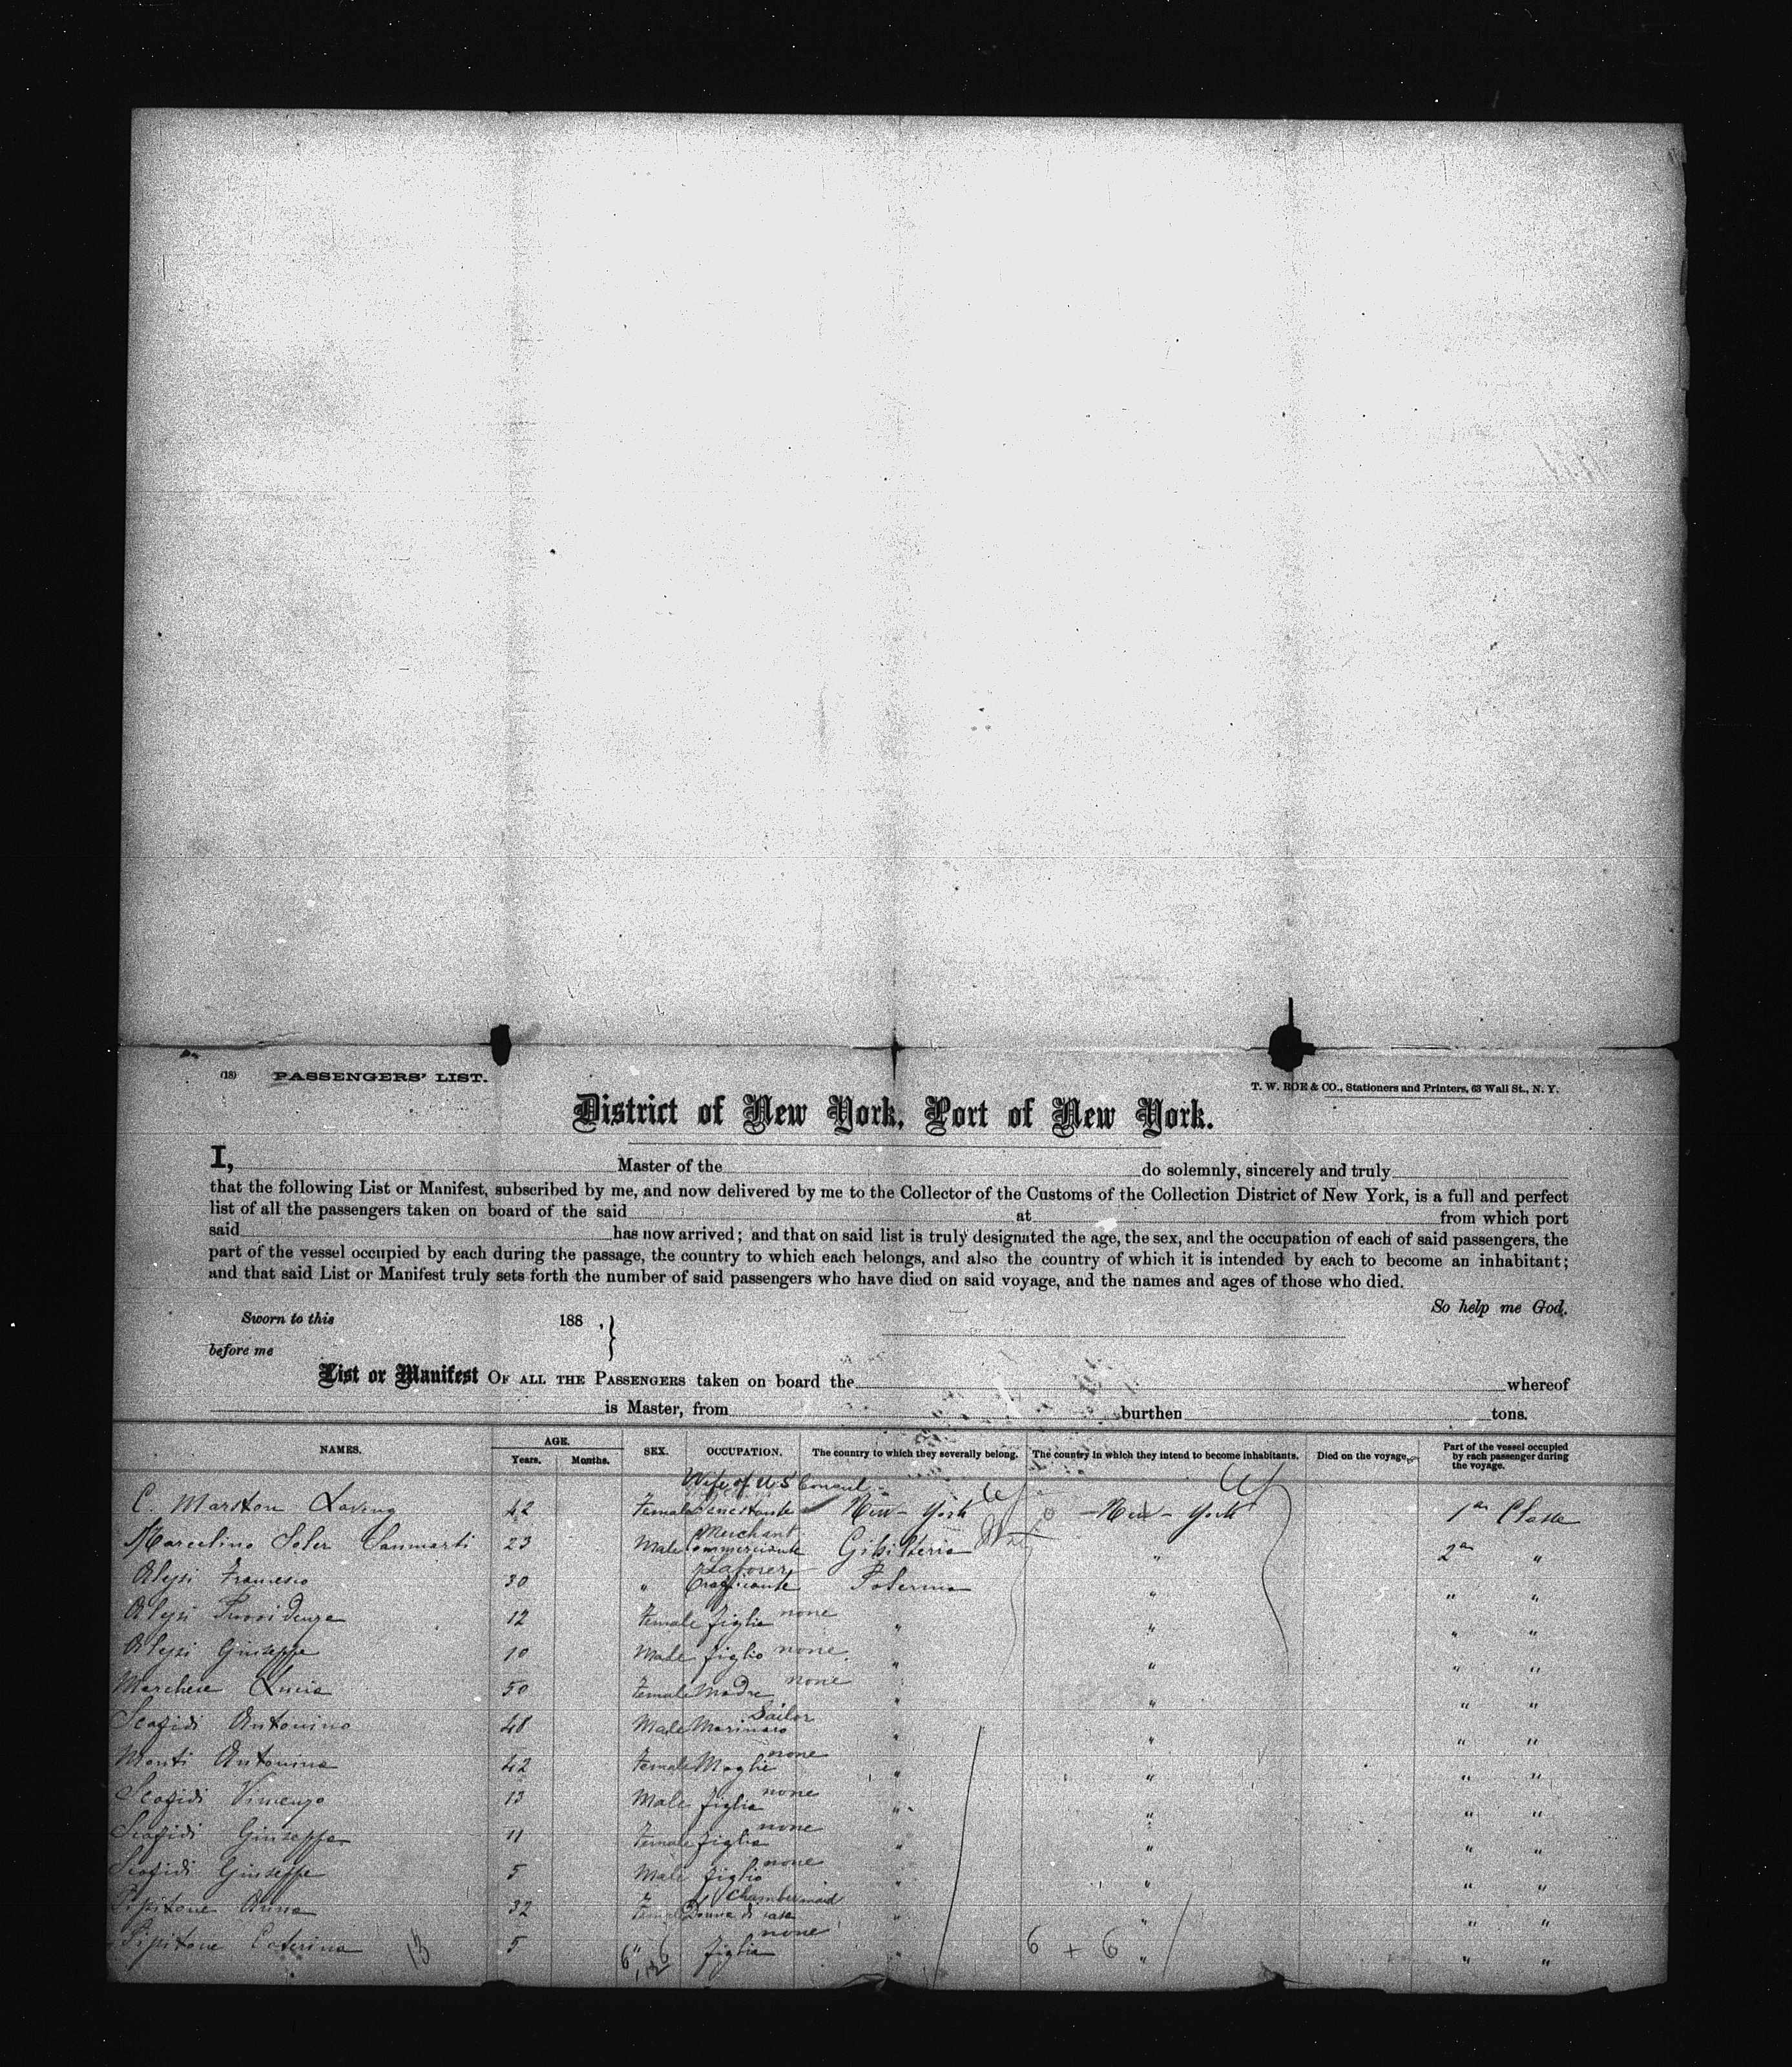 (18) PASSENGERS' LIST.
T. W. ROE & CO., Stationers and Printers, 63 Wall St., N. Y.
District of New York, Port of New York.
I, Master of the do solemnly, sincerely and truly
that the following List or Manifest, subscribed by me, and now delivered by me to the Collector of the Customs of the Collection District of New York, is a full and perfect
list of all the passengers taken on board of the said at from which port
said has now arrived; and that on said list is truly designated the age, the sex, and the occupation of each of said passengers, the
part of the vessel occupied by each during the passage, the country to which each belongs, and also the country of which it is intended by each to become an inhabitant;
and that said List or Manifest truly sets forth the number of said passengers who have died on said voyage, and the names and ages of those who died.
So help me God.
Sworn to this 188 ,
before me
List or Manifest OF ALL THE PASSENGERS taken on board the whereof
is Master, from burthen tons.
NAMES. AGE. Years. Months. SEX. OCCUPATION. The country to which they severally belong. The country in which they intend to become inhabitants. Died on the voyage. Part of the vessel occupied by each passenger during the voyage.
Wife of U S Consul
C. Marston 42 Female New-York New-York 1a Classe
Merchant
Marcelino Soler Sanmarti 23 Male Commerciante Gibilterra " 2a "
Laborer
Alessi Francesco 30 " Trafficante Palermo " " "
Alessi Provvidenza 12 Female figlia none " " " "
Alessi Giuseppe 10 Male figlio none " " " "
Marchese Lucia 50 Female Madre none " " " "
Scafidi Antonino 48 Male Marinaro Sailor " " " "
Monti Antonina 42 Female Moglie none " " " "
Scafidi Vincenzo 13 Male figlio none " " " "
Scafidi Giuseppa 11 Female figlia none " " " "
Scafidi Giuseppe 5 Male figlio none " " " "
Chambermaid
Pipitone Anna 32 Female Donna di casa " " " "
Pipitone Caterina 13 5 " figlia none " 6 + 6 " " "